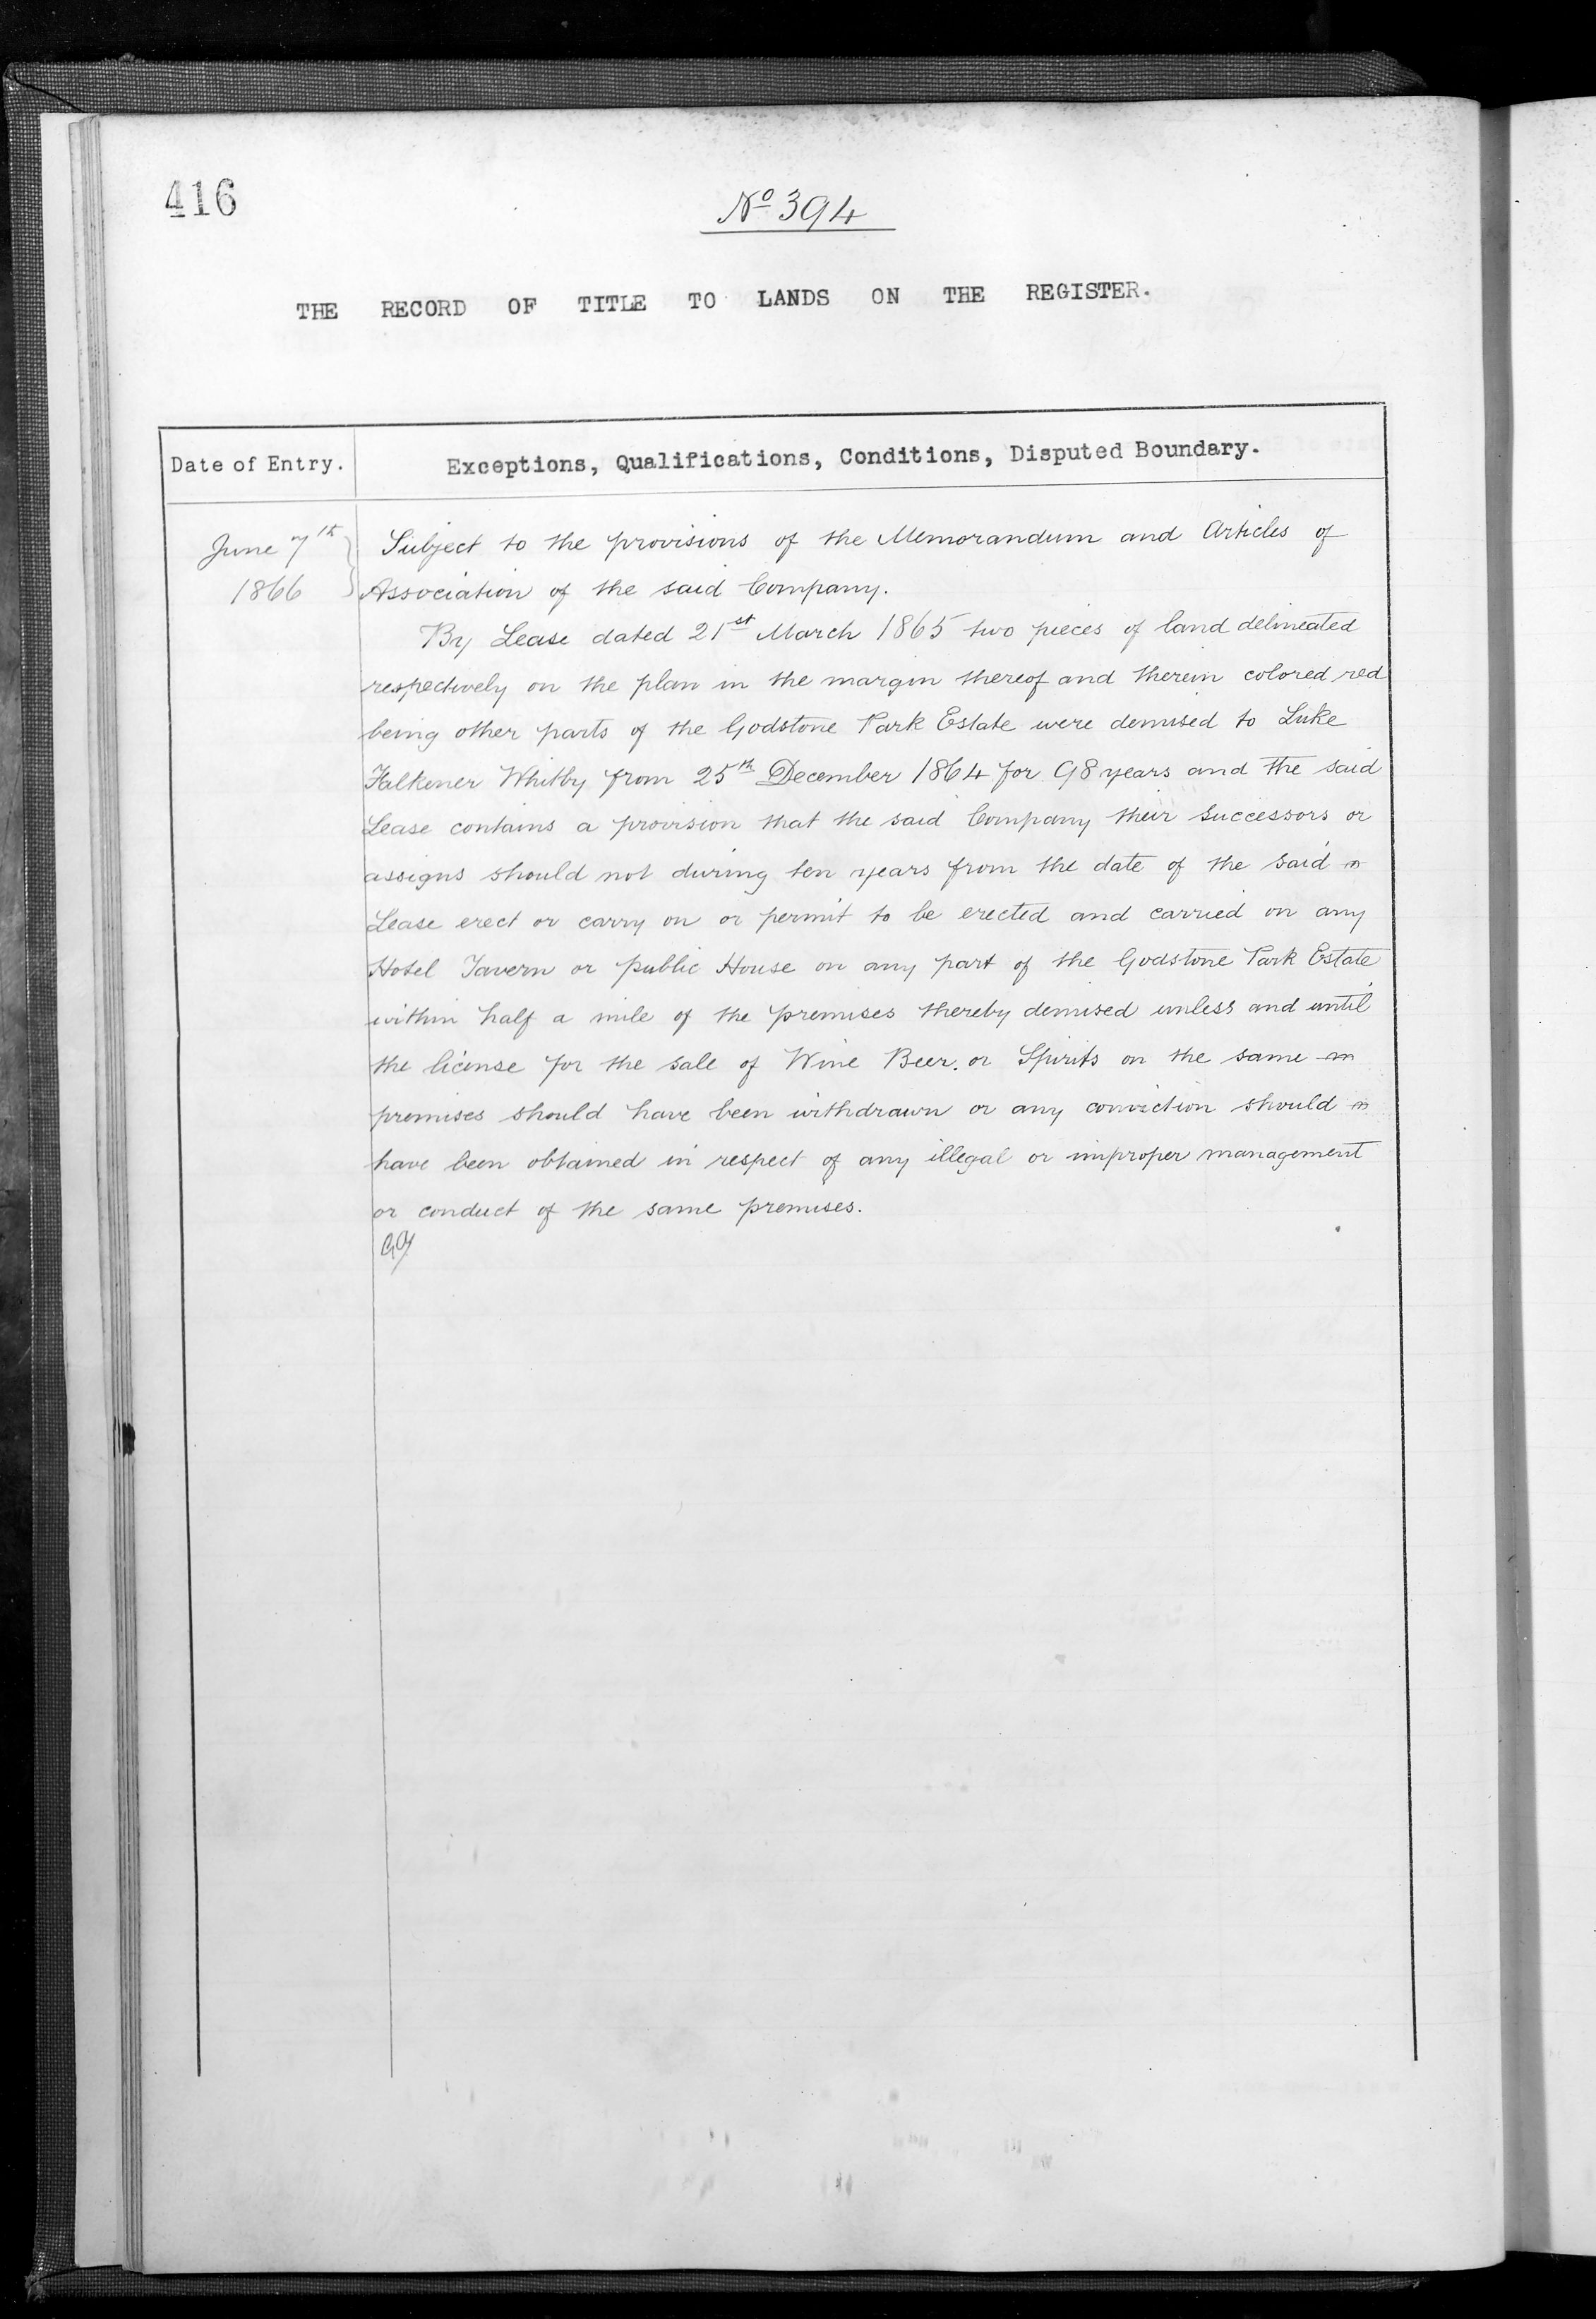 416
Nº 394
THE RECORD OF TITLE TO LANDS ON THE REGISTER.
Date of Entry.
Exceptions, Qualifications, Conditions, Disputed Boundary.
June 7th
1866
Subject to the provisions of the Memorandum and Articles of
Association of the said Company.
By Lease dated 21st March 1865 two pieces of land delineated
respectively on the plan in the margin thereof and therein colored red
being other parts of the Godstone Park Estate were demised to Luke
Falkener Whitby from 25th December 1864 for 98 years and the said
Lease contains a provision that the said Company their successors or
assigns should not during ten years from the date of the said
Lease erect or carry on or permit to be erected and carried on any
Hotel Tavern or public House on any part of the Godstone Park Estate
within half a mile of the premises thereby demised unless and until
the license for the sale of Wine Beer. or Spirits on the same
premises should have been withdrawn or any conviction should
have been obtained in respect of any illegal or improper management
or conduct of the same premises.